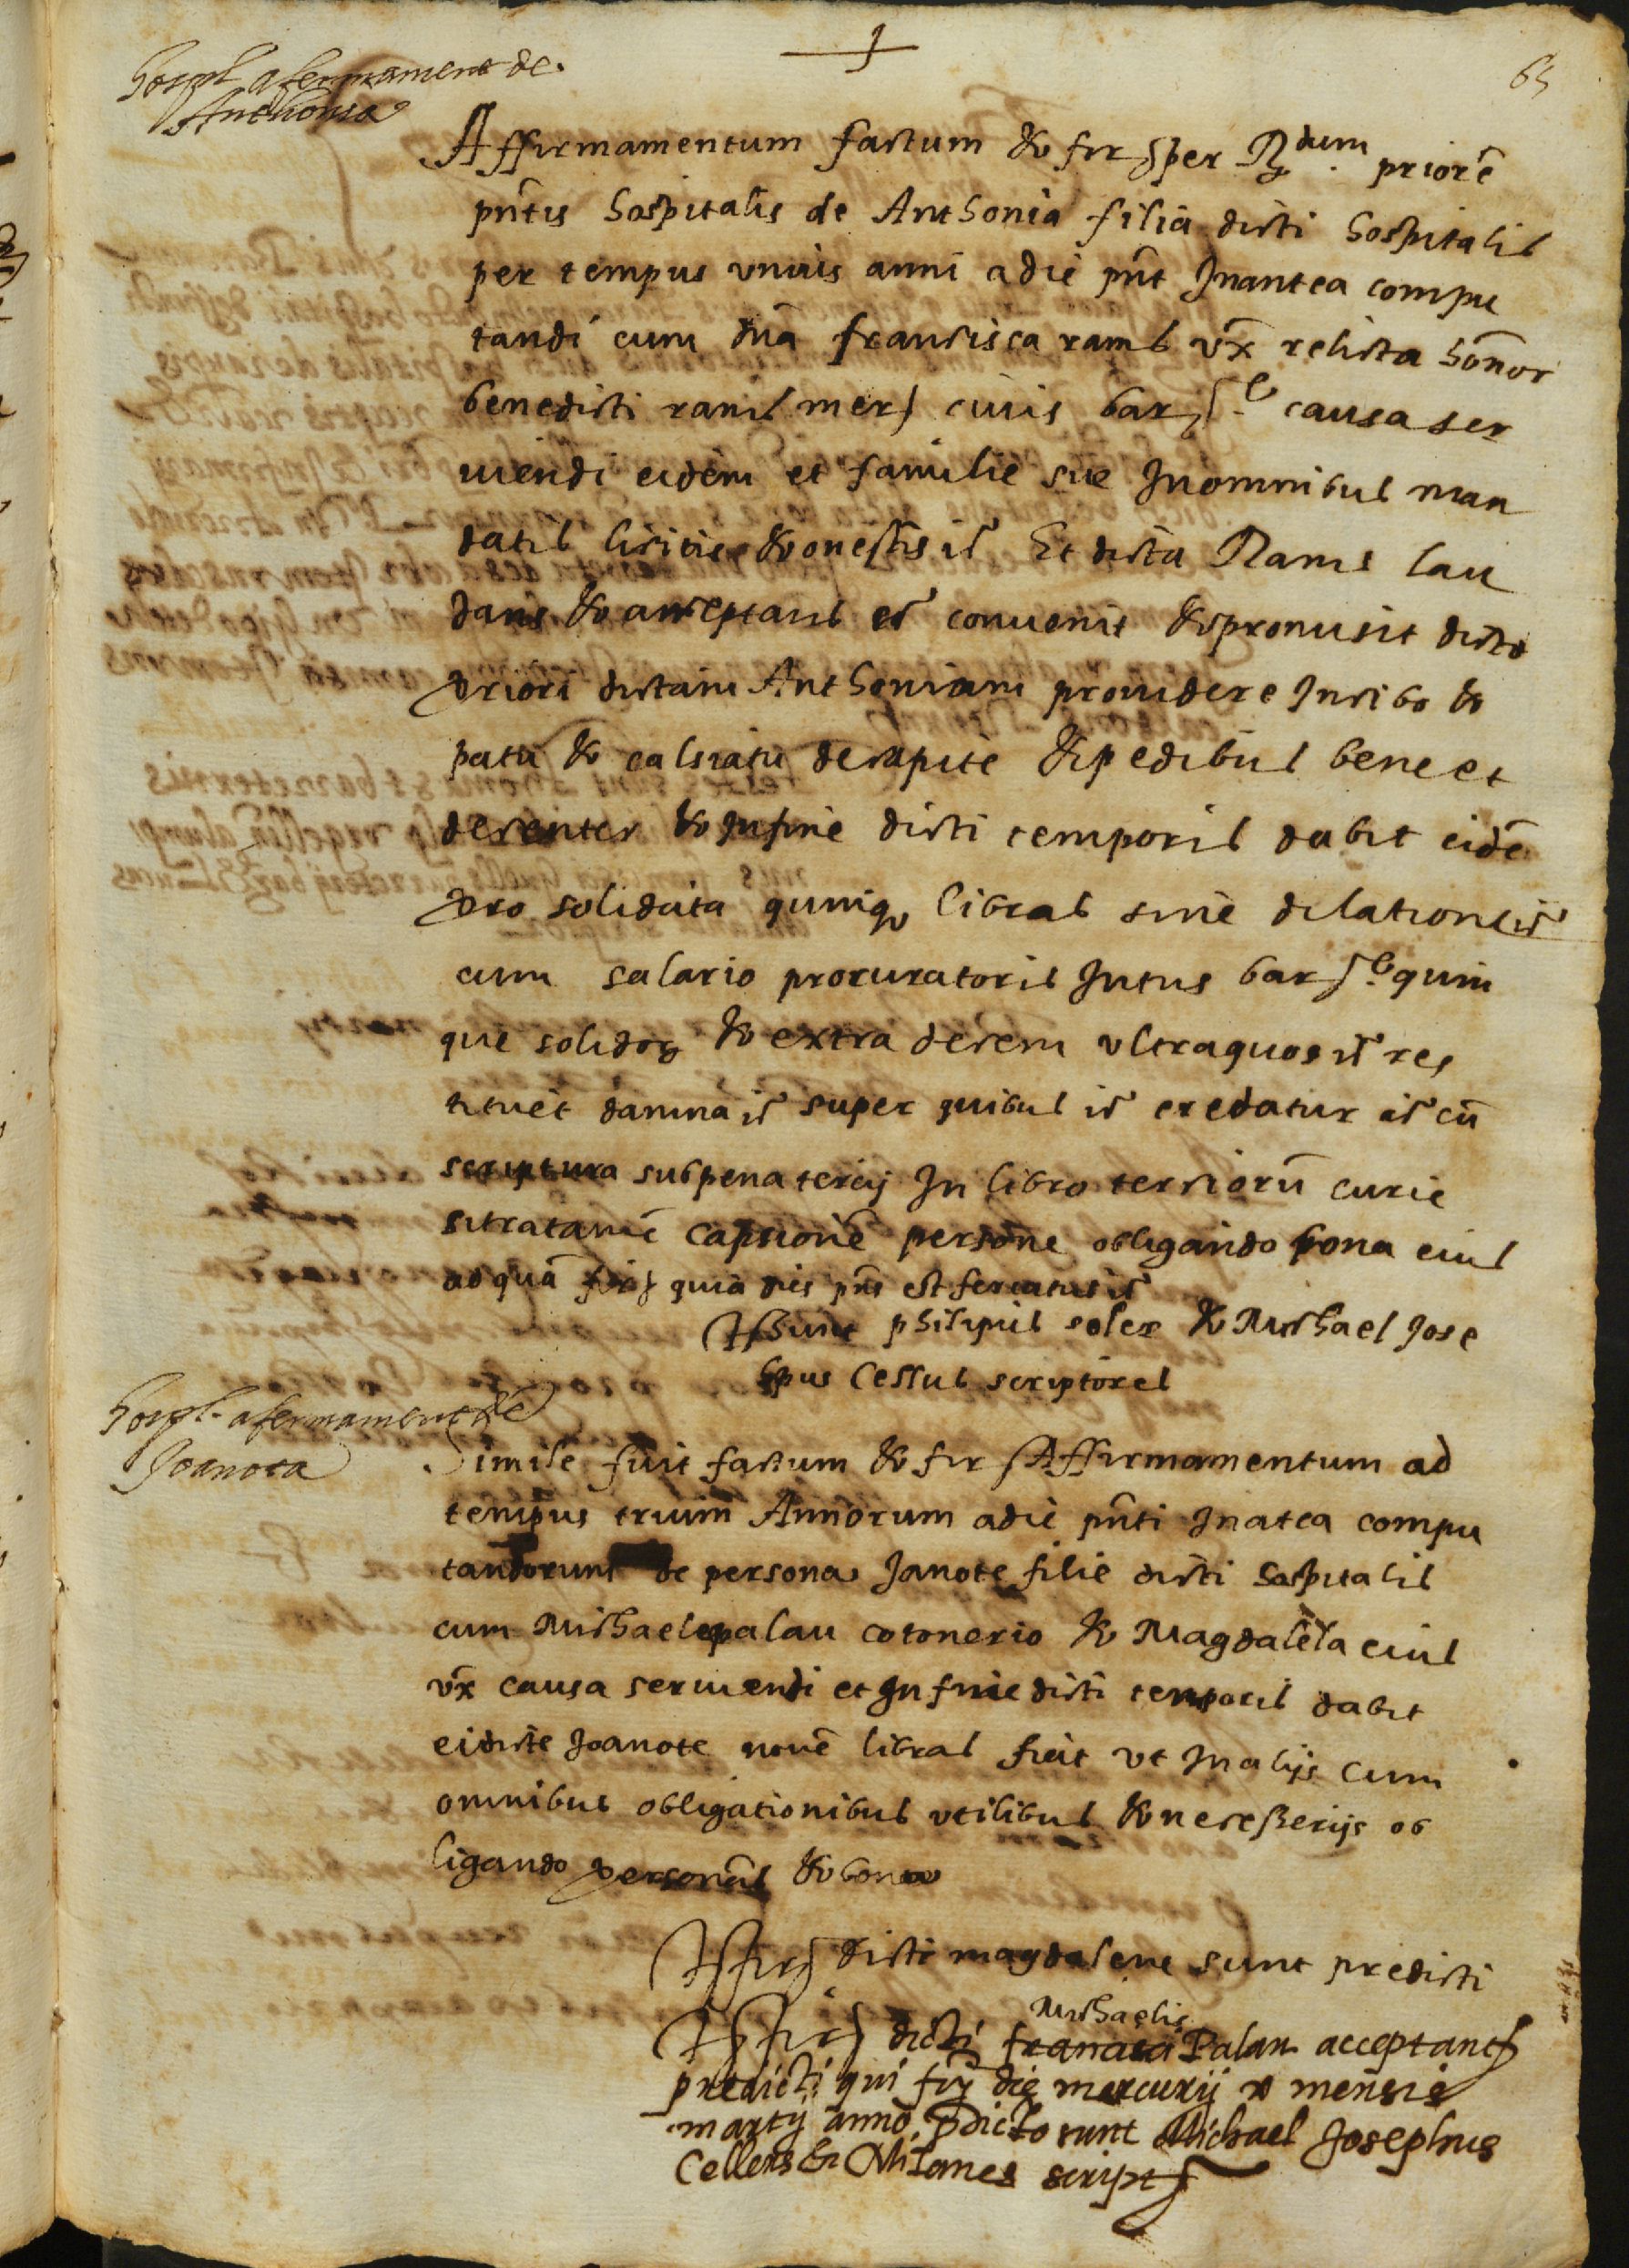 65
Hospl afermament de
Anthonia
Affirmamentum factum & fir per Rdum priorē
pñtis hospitalis de Anthonia filia dicti hospitalis
per tempus unius anni a die pñt Inantea compu
tandi cum dña francisca rams vx̄ relicta honor
benedicti rams mer civis bar causa ser
viendi eidem et familie sue In omnibus man
datis licitis & onestis Et dicta Rams lau
dans & acceptans convenit & promisit dicto
priori dictam Anthoniam providere In cibo &
potu & calsiatu de capite & pedibus bene et
decenter & In fine dicti temporis dabit eidē
pro solidata quinq libras sine dilatione
cum salario procuratoris Intus bar quin
que solidor & extra decem ultra quos res
tituet damna super quibus credatur cū
scriptura sub pena tercij In libro terciorū curie
captionē persone obligando bona eius
ad quā quia dies pñs est feriatus
sunt philipus soler & Michael Jose
phus Cellus scriptores
Hospl afermament de
Joanota
Simile fuit factum & fir Affirmamentum ad
tempus trium Annorum a die pñti Inatea compu
tandorum de persona Janote filie dicti hospitalis
cum Michaele palau cotonerio & Magdalela eius
vx̄ causa serviendi et In fine dicti temporis dabit
ei dicte Joanote novē libras fiat ut In alijs cum
omnibus obligationibus utilibus & necesserijs ob
ligando personas & bona
fir dicte magdalene sunt predicti
Michaelis
fir dicti Palau acceptant
predicti qui fir die mercurij x mensis
martij anno pdicto sunt Michael Josephus
Cellers & Milanes script